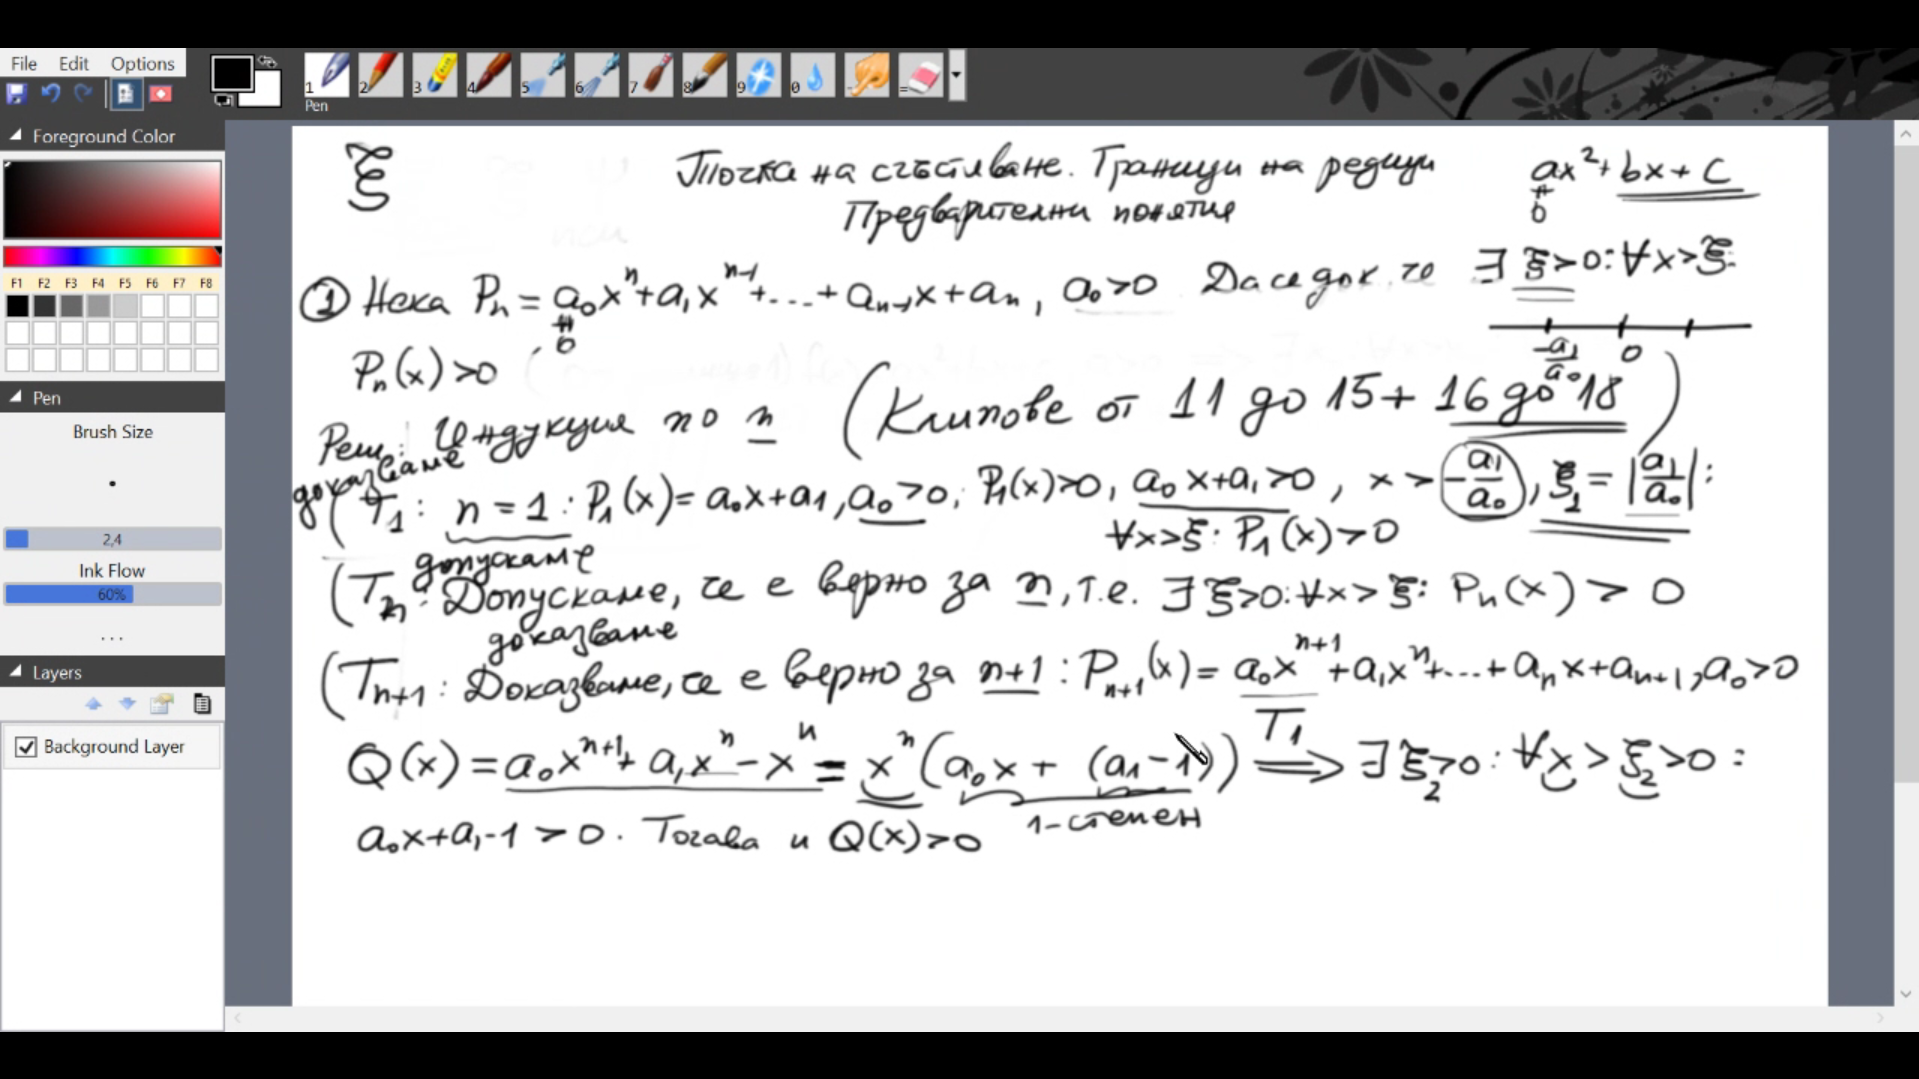 File Edit Options
1 2 3 4 5 6 7 8 9 0 - =
Pen
Foreground Color
F1 F2 F3 F4 F5 F6 F7 F8
Pen
Brush Size
2,4
Ink Flow
60%
...
Layers
Background Layer
ξ
Точка на сгъстяване. Граници на редици
Предварителни понятия
ax² + bx + c
≠
0
① Нека Pₙ = a₀xⁿ + a₁xⁿ⁻¹ + ... + aₙ₋₁x + aₙ, a₀ > 0. Да се док. че ∃ ξ > 0 : ∀x > ξ :
≠
0
-a₁/a₀ 0
Pₙ(x) > 0
(Клипове от 11 до 15 + 16 до 18)
Реш.: Индукция по n
доказваме
(T₁ : n = 1 : P₁(x) = a₀x + a₁, a₀ > 0, P₁(x) > 0, a₀x + a₁ > 0, x > -a₁/a₀, ξ₁ = |a₁/a₀| :
∀x > ξ : P₁(x) > 0
допускаме
(Tₙ : Допускаме, че е вярно за n, т.е. ∃ ξ > 0 : ∀x > ξ : Pₙ(x) > 0
доказваме
(Tₙ₊₁ : Доказваме, че е вярно за n+1 : Pₙ₊₁(x) = a₀xⁿ⁺¹ + a₁xⁿ + ... + aₙx + aₙ₊₁, a₀ > 0
Q(x) = a₀xⁿ⁺¹ + a₁xⁿ - xⁿ = xⁿ(a₀x + (a₁ - 1)) T₁ ⟹ ∃ ξ₂ > 0 : ∀x > ξ₂ > 0 :
1-степен
a₀x + a₁ - 1 > 0. Тогава и Q(x) > 0